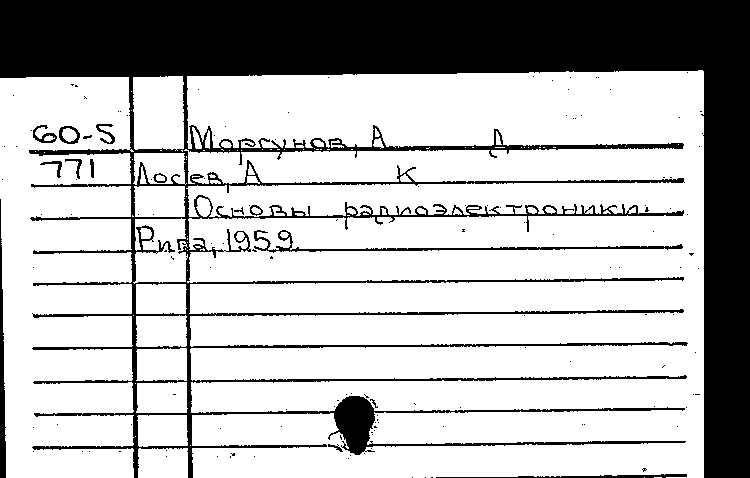 60-5 Моргунов, А Д
771 Лосев, А К
Основы радиоэлектроники.
Рига, 1959.